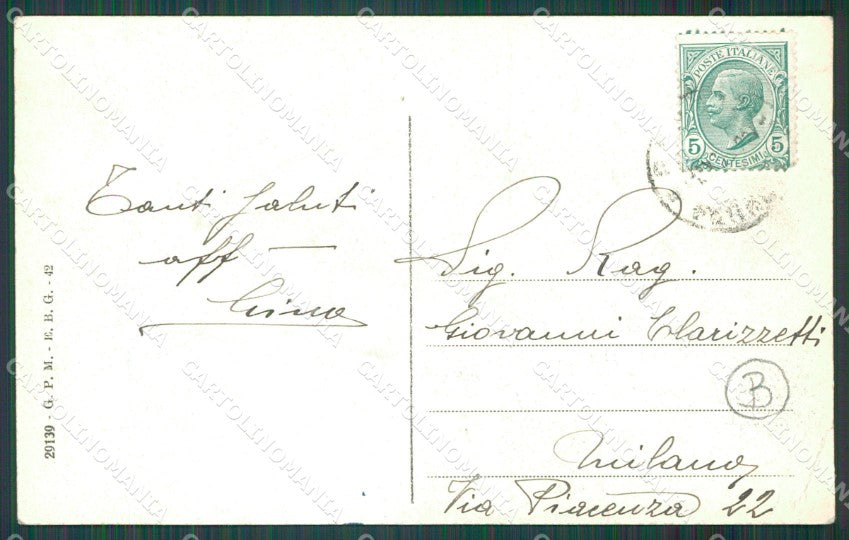 Tanti saluti
aff
29139 - G. P. M. - E. B. G. - 42
POSTE ITALIANE
5 5
CENTESIMI
Sig. Rag.
Giovanni Clarizzetti
B
Milano
Via Piacenza 22
CARTOLINOMANIA